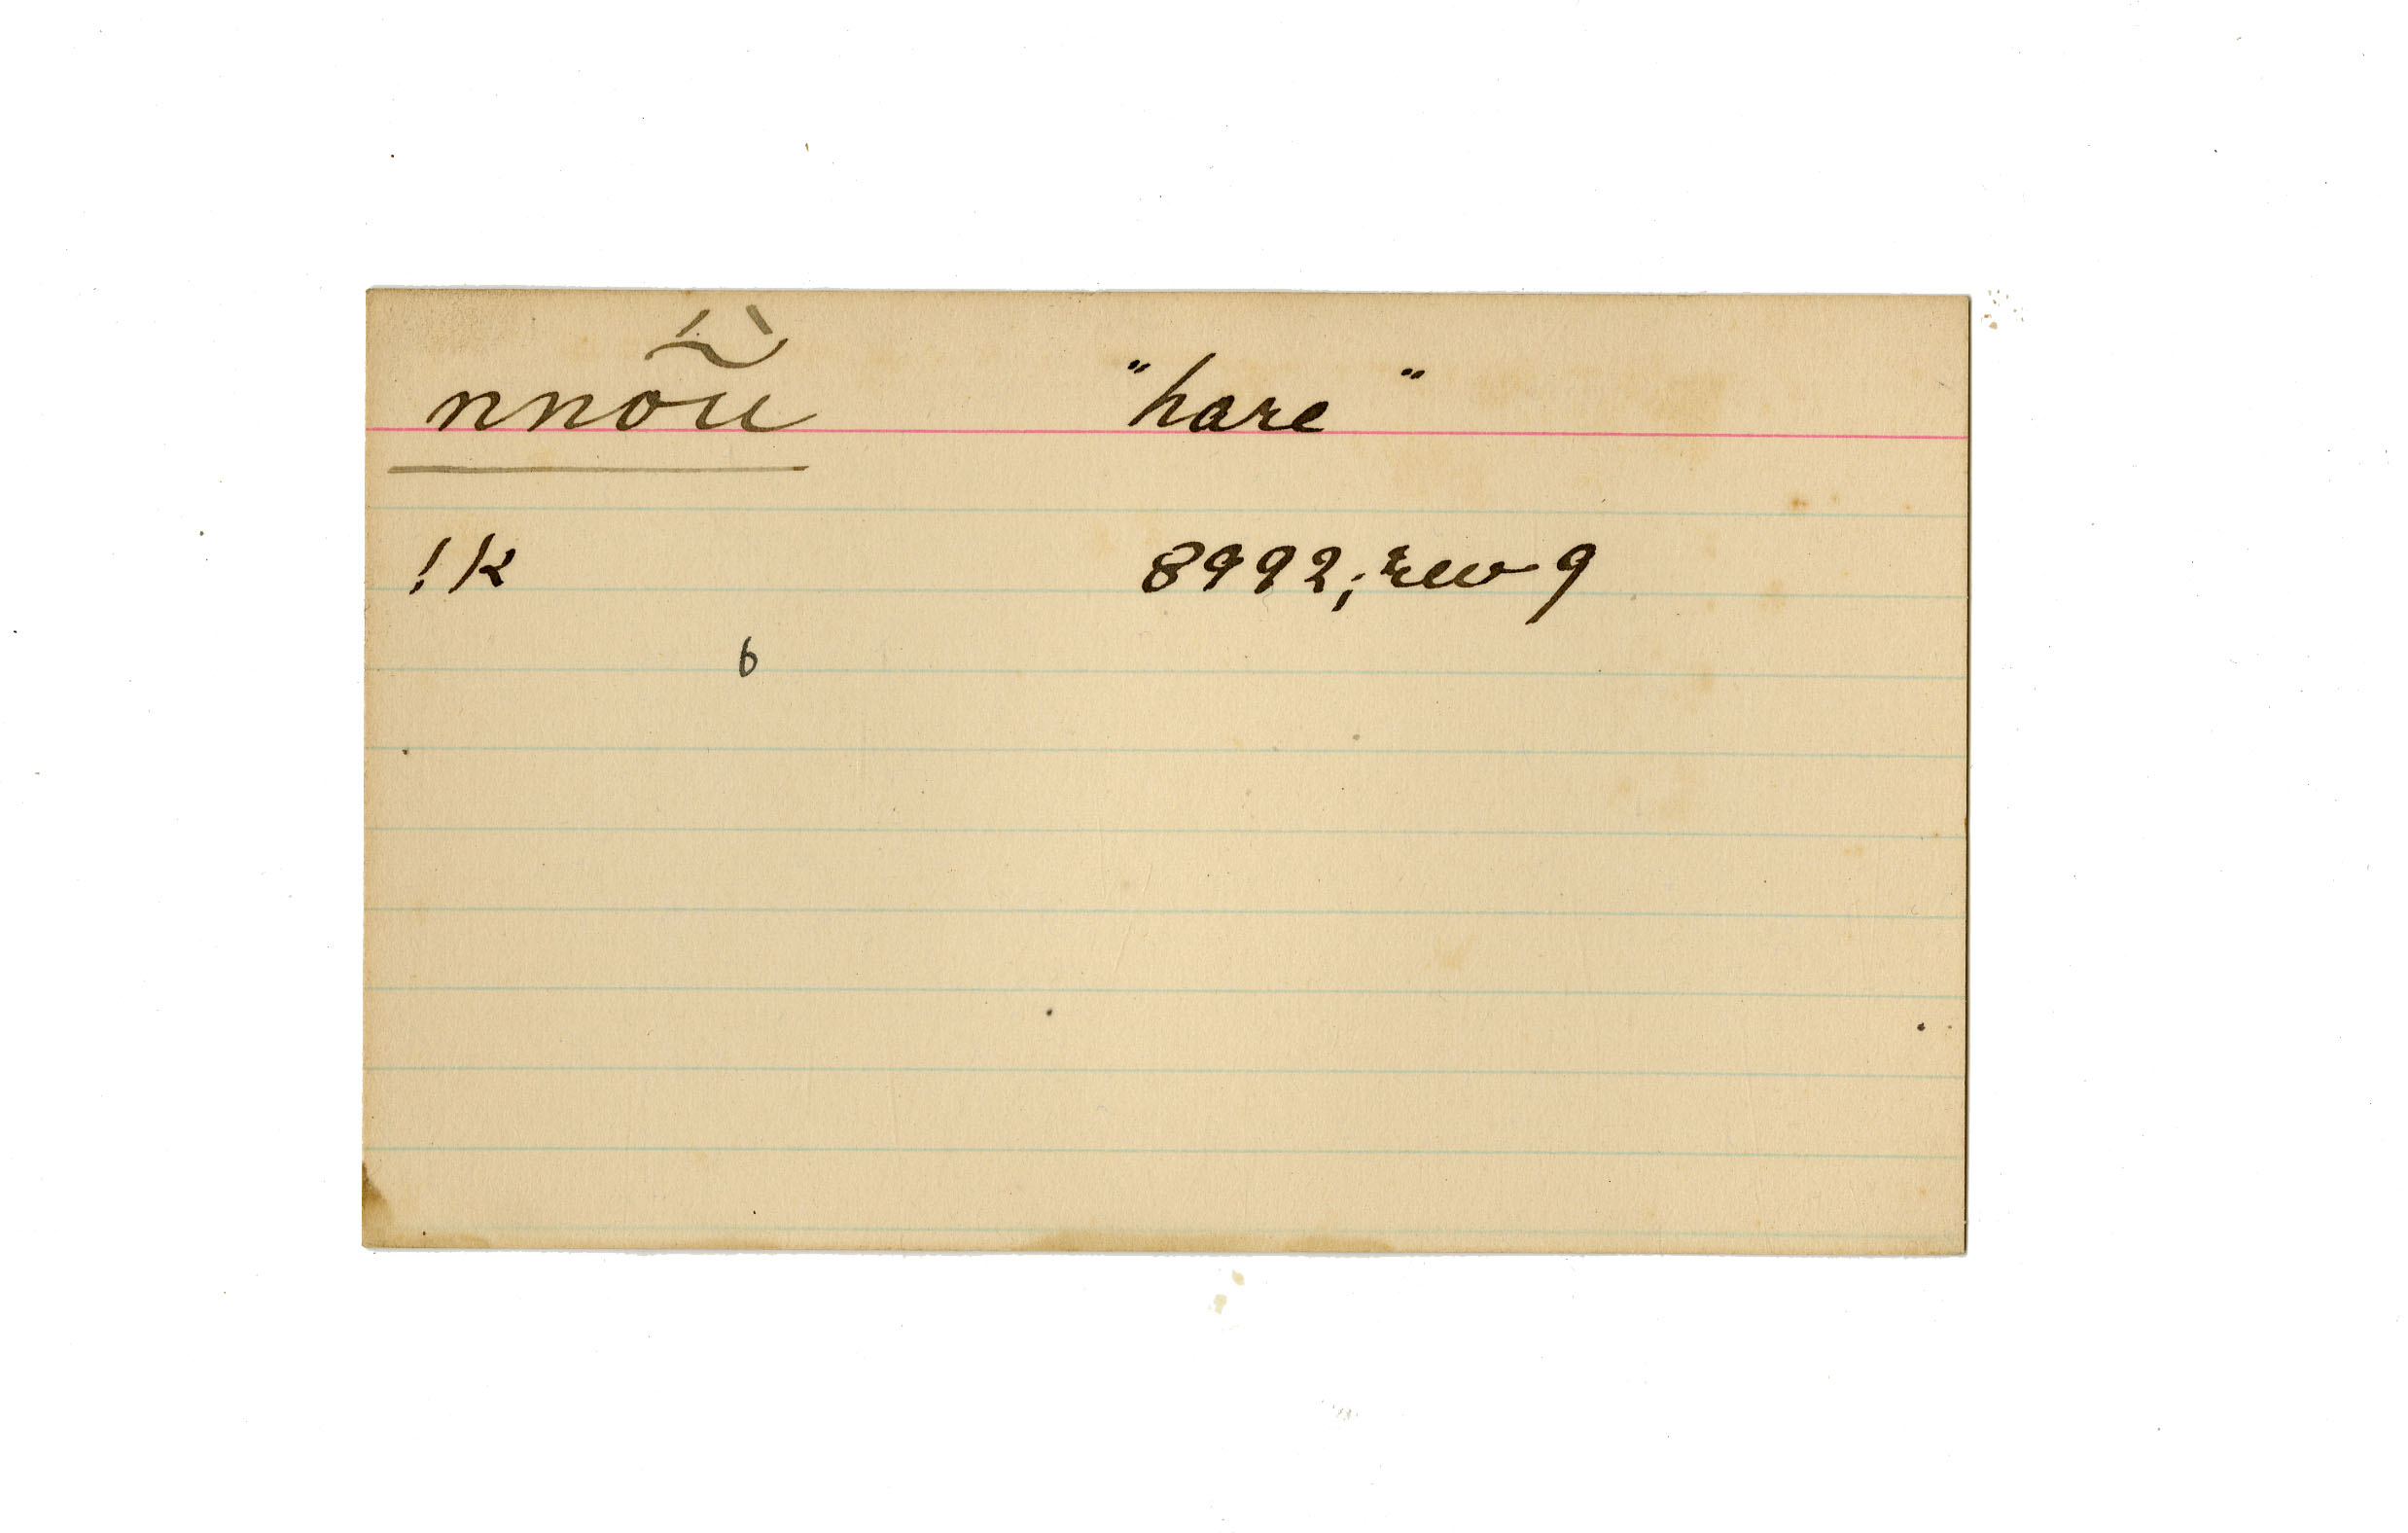 nnõ̀ú "hare"
!k 8992; rev 9
6